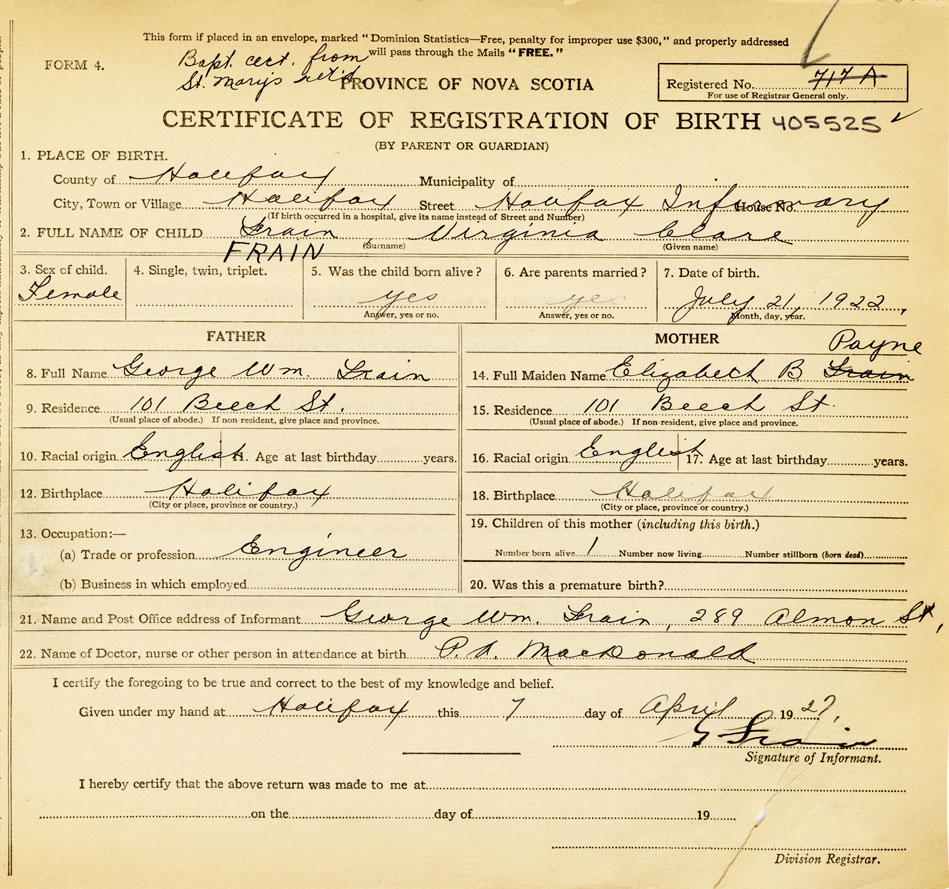 This form if placed in an envelope, marked "Dominion Statistics—Free, penalty for improper use $300," and properly addressed
will pass through the Mails "FREE."
FORM 4.
Bapt. cert. from
St. Mary's ret'd
PROVINCE OF NOVA SCOTIA
Registered No. 717 A
For use of Registrar General only.
CERTIFICATE OF REGISTRATION OF BIRTH 405525
(BY PARENT OR GUARDIAN)
1. PLACE OF BIRTH.
County of Halifax Municipality of
City, Town or Village Halifax Street Halifax Infirmary House No.
(If birth occurred in a hospital, give its name instead of Street and Number)
2. FULL NAME OF CHILD Frain, Virginia Clare
FRAIN (Surname) (Given name)
3. Sex of child. 4. Single, twin, triplet. 5. Was the child born alive? 6. Are parents married? 7. Date of birth.
Female yes yes July 21, 1922,
Answer, yes or no. Answer, yes or no. Month, day, year.
FATHER MOTHER
Payne
8. Full Name George Wm. Frain 14. Full Maiden Name Elizabeth B Frain
9. Residence 101 Beech St. 15. Residence 101 Beech St.
(Usual place of abode.) If non-resident, give place and province. (Usual place of abode.) If non-resident, give place and province.
10. Racial origin English 11. Age at last birthday years. 16. Racial origin English 17. Age at last birthday years.
12. Birthplace Halifax 18. Birthplace Halifax
(City or place, province or country.) (City or place, province or country.)
13. Occupation:— 19. Children of this mother (including this birth.)
(a) Trade or profession Engineer Number born alive 1 Number now living Number stillborn (born dead)
(b) Business in which employed 20. Was this a premature birth?
21. Name and Post Office address of Informant George Wm. Frain, 289 Almon St.,
22. Name of Doctor, nurse or other person in attendance at birth P.A. MacDonald
I certify the foregoing to be true and correct to the best of my knowledge and belief.
Given under my hand at Halifax this 7 day of April 1927,
G Frain
Signature of Informant.
I hereby certify that the above return was made to me at
on the day of 19
Division Registrar.